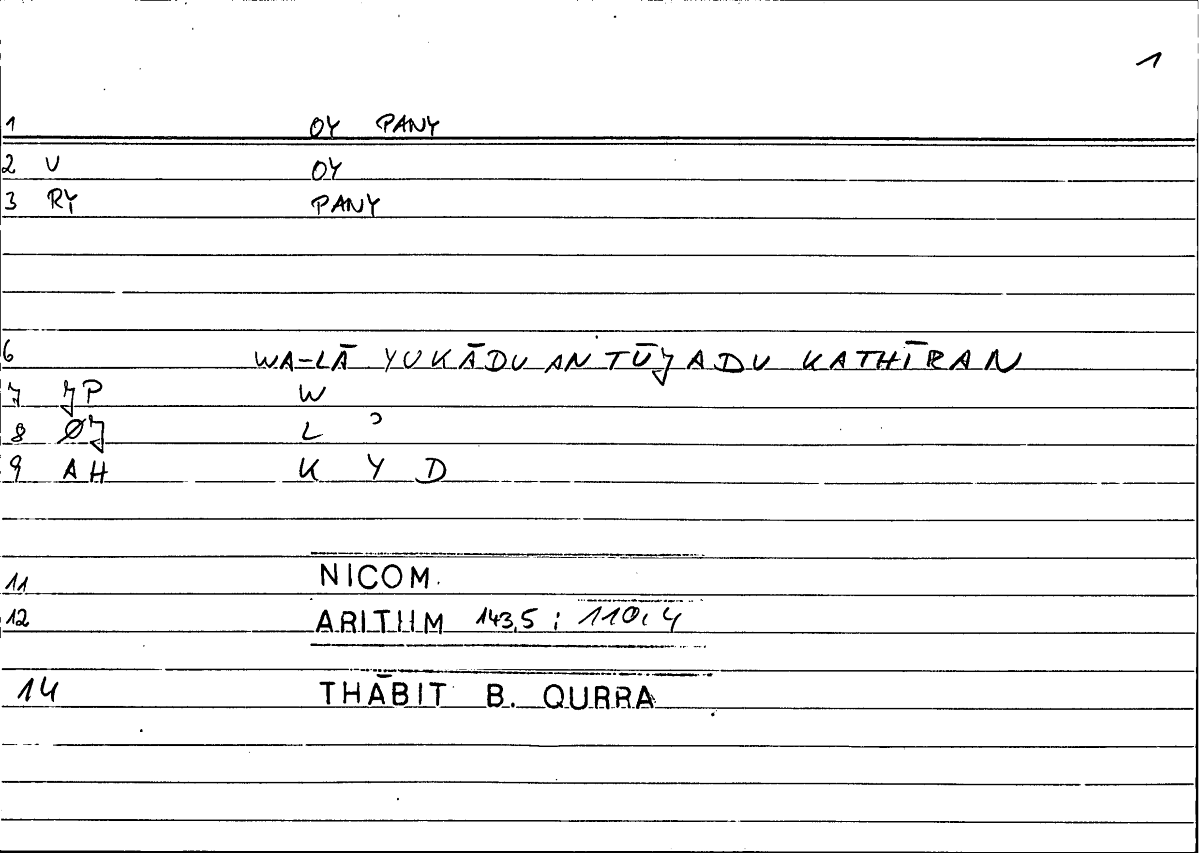 1
1 OY PANY
2 V OY
3 RY PANY
6 WA-LĀ YUKĀDU AN TŪJADU KATHĪRAN
7 JP W
8 ØJ L ʾ
9 AH K Y D
11 NICOM.
12 ARITHM 143,5 ; 110,4
14 THĀBIT B. QURRA